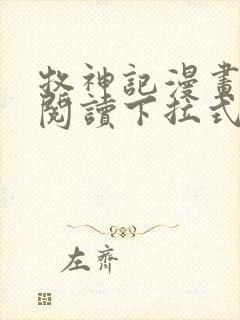 牧神記漫畫
閱讀下拉式
左齊